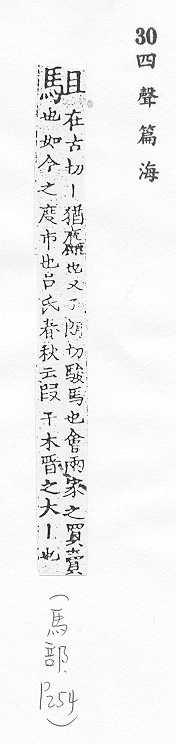 30四聲篇海
駔
在古切丨猶麤也又子朗切駿馬也會兩家之買賣
也如今之度市也吕氏春秋云段干木晋之大丨也
(馬部 P254)